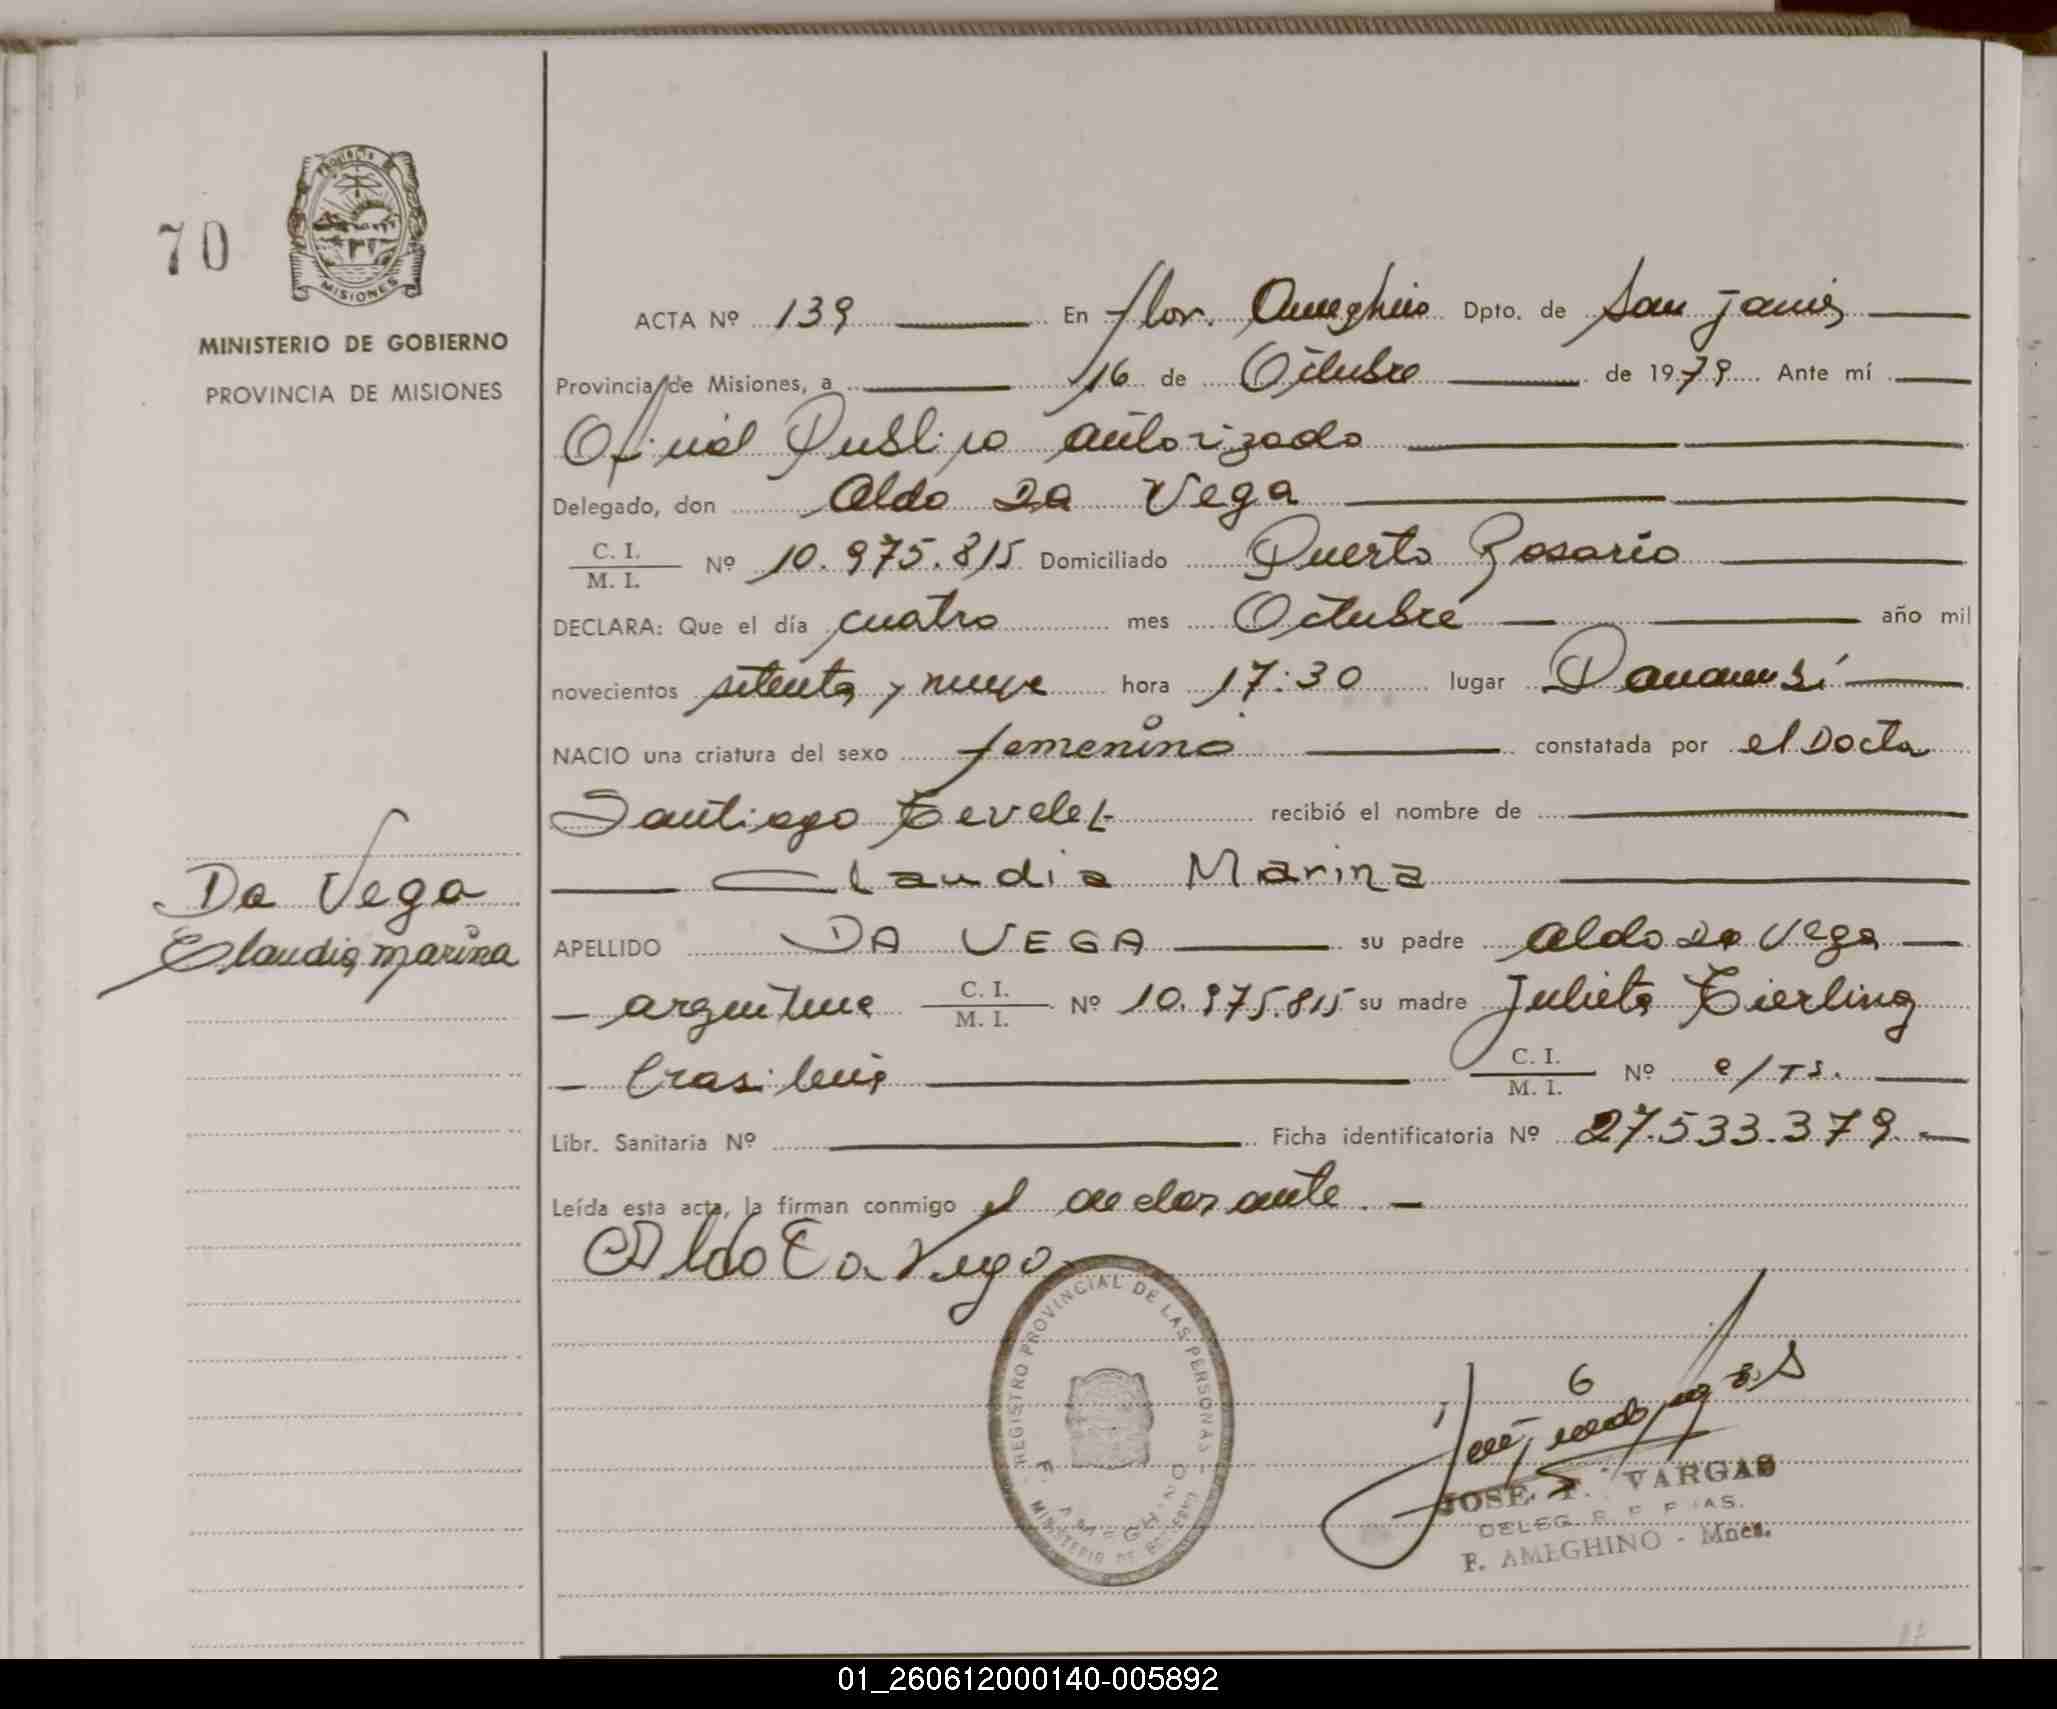 70
PROVINCIA DE
MISIONES
MINISTERIO DE GOBIERNO
PROVINCIA DE MISIONES
ACTA Nº 139 En Flor. Ameghino Dpto. de San Javier
Provincia de Misiones, a 16 de Octubre de 1979 Ante mí
Oficial Publico autorizado
Delegado, don Aldo Da Vega
C. I.
M. I. Nº 10.975.815 Domiciliado Puerto Rosario
DECLARA: Que el día cuatro mes Octubre año mil
novecientos setenta y nueve hora 17:30 lugar Panambí
NACIO una criatura del sexo femenino constatada por el Docto
Santiago recibió el nombre de
Claudia Marina
APELLIDO DA VEGA su padre Aldo Da Vega
argentino C. I.
M. I. Nº 10.975.815 su madre Julieta
brasilera C. I.
M. I. Nº
Libr. Sanitaria Nº Ficha identificatoria Nº 27.533.379.
Leída esta acta, la firman conmigo el declarante.
Aldo Da Vega
Da Vega
Claudia Marina
REGISTRO PROVINCIAL DE LAS PERSONAS
F. AMEGHINO
MINISTERIO DE GOBIERNO
JOSE F. VARGAS
DELEG.
F. AMEGHINO - Mnes.
01_260612000140-005892